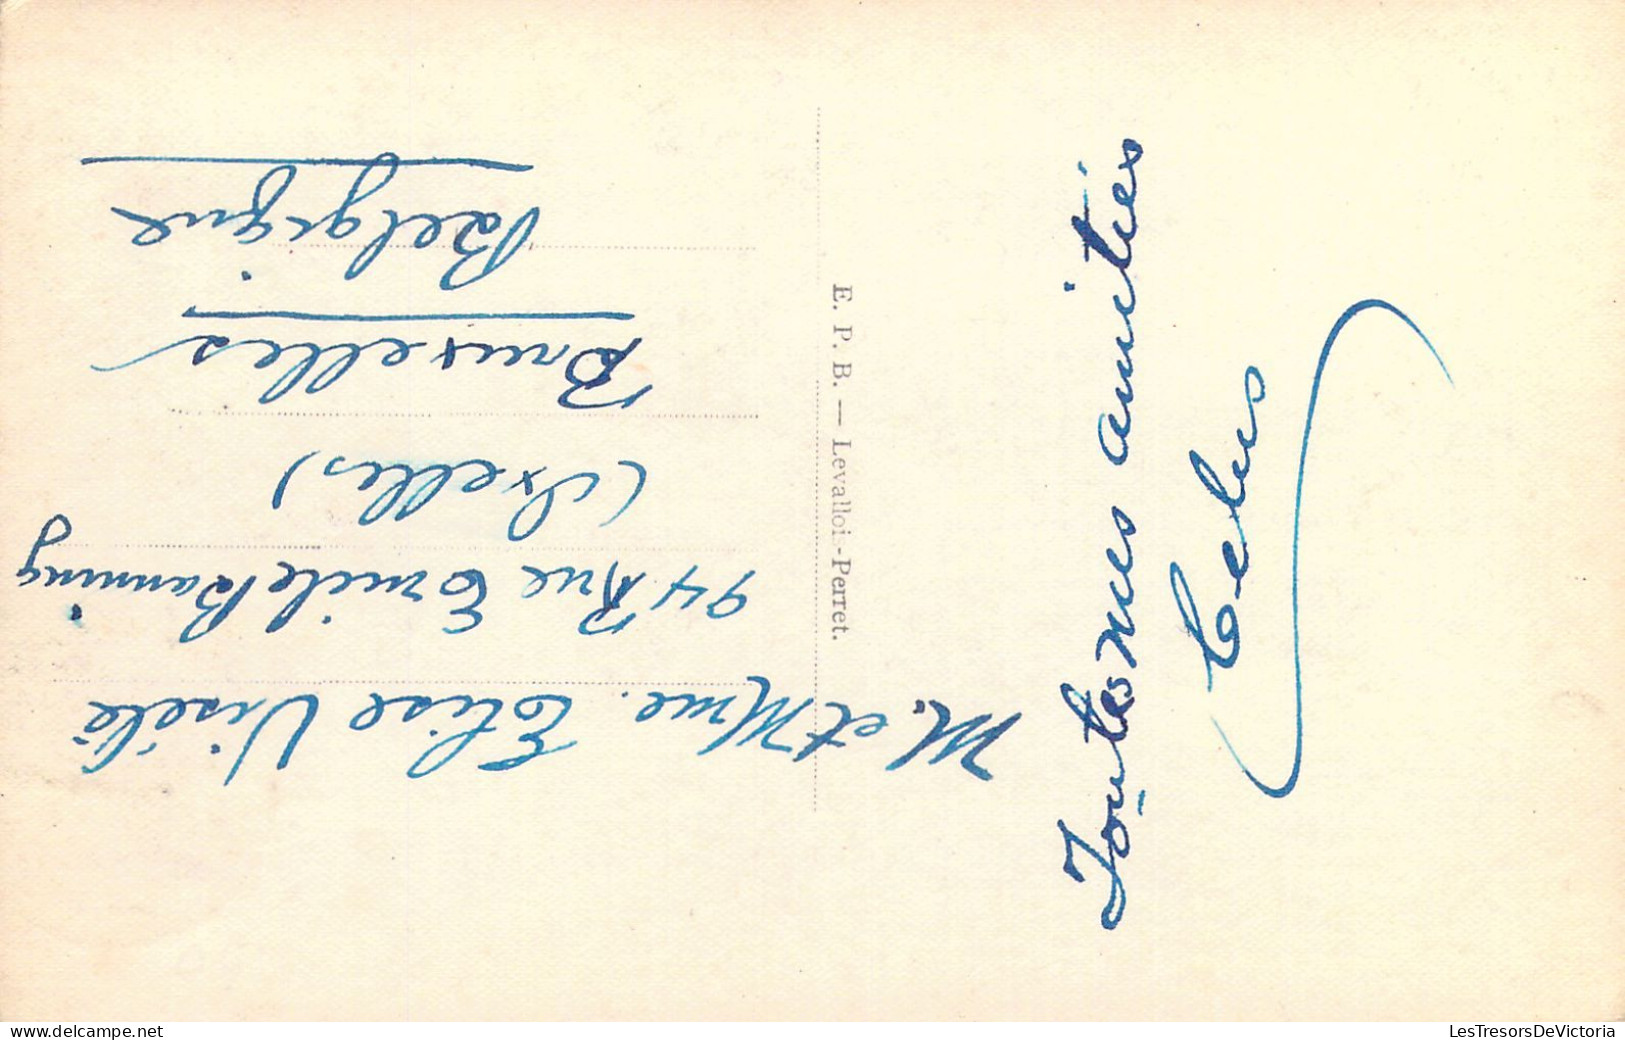 Toutes mes amitiés
Celus
E. P. B. — Levalloi-Perret.
M. et Mme. Elise Visélé
94 Rue Emile Banning
(Ixelles)
Bruxelles
Belgique
www.delcampe.net
LesTresorsDeVictoria